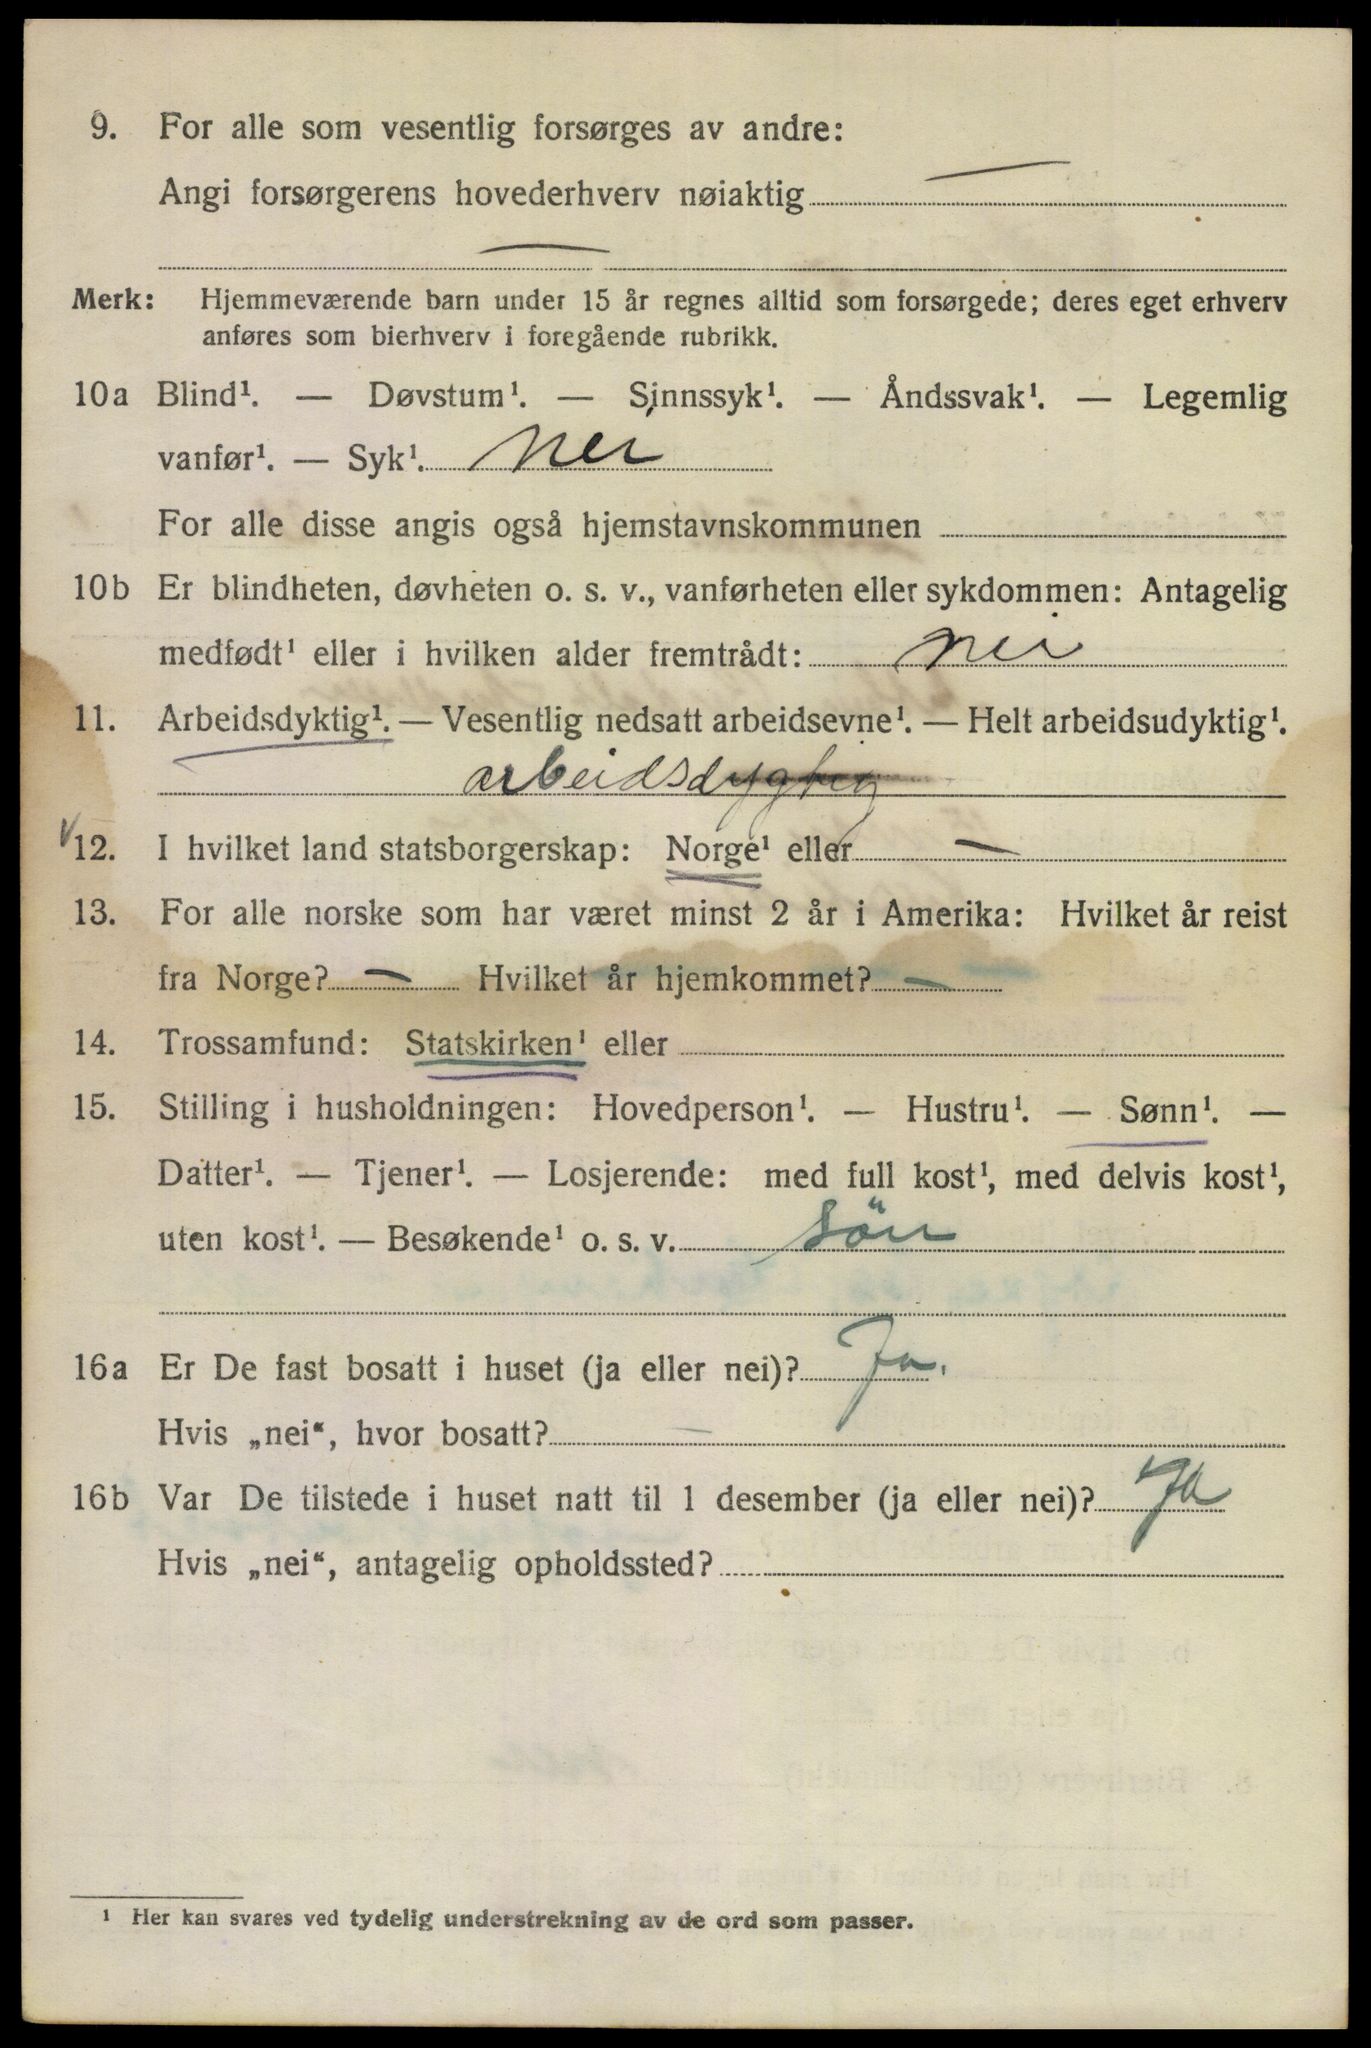 9. For alle som vesentlig forsørges av andre:
Angi forsørgerens hovederhverv nøiaktig —
—
Merk: Hjemmeværende barn under 15 år regnes alltid som forsørgede; deres eget erhverv
anføres som bierhverv i foregående rubrikk.
10a Blind¹. — Døvstum¹. — Sinnssyk¹. — Åndssvak¹. — Legemlig
vanfør¹. — Syk¹. nei
For alle disse angis også hjemstavnskommunen
10b Er blindheten, døvheten o. s. v., vanførheten eller sykdommen: Antagelig
medfødt¹ eller i hvilken alder fremtrådt: nei
11. Arbeidsdyktig¹. — Vesentlig nedsatt arbeidsevne¹. — Helt arbeidsudyktig¹.
arbeidsdygtig
12. I hvilket land statsborgerskap: Norge¹ eller —
13. For alle norske som har været minst 2 år i Amerika: Hvilket år reist
fra Norge? — Hvilket år hjemkommet? —
14. Trossamfund: Statskirken¹ eller
15. Stilling i husholdningen: Hovedperson¹. — Hustru¹. — Sønn¹. —
Datter¹. — Tjener¹. — Losjerende: med full kost¹, med delvis kost¹,
uten kost¹. — Besøkende¹ o. s. v. sön
16a Er De fast bosatt i huset (ja eller nei)? Ja.
Hvis „nei“, hvor bosatt? —
16b Var De tilstede i huset natt til 1 desember (ja eller nei)? Ja
Hvis „nei“, antagelig opholdssted?
¹ Her kan svares ved tydelig understrekning av de ord som passer.